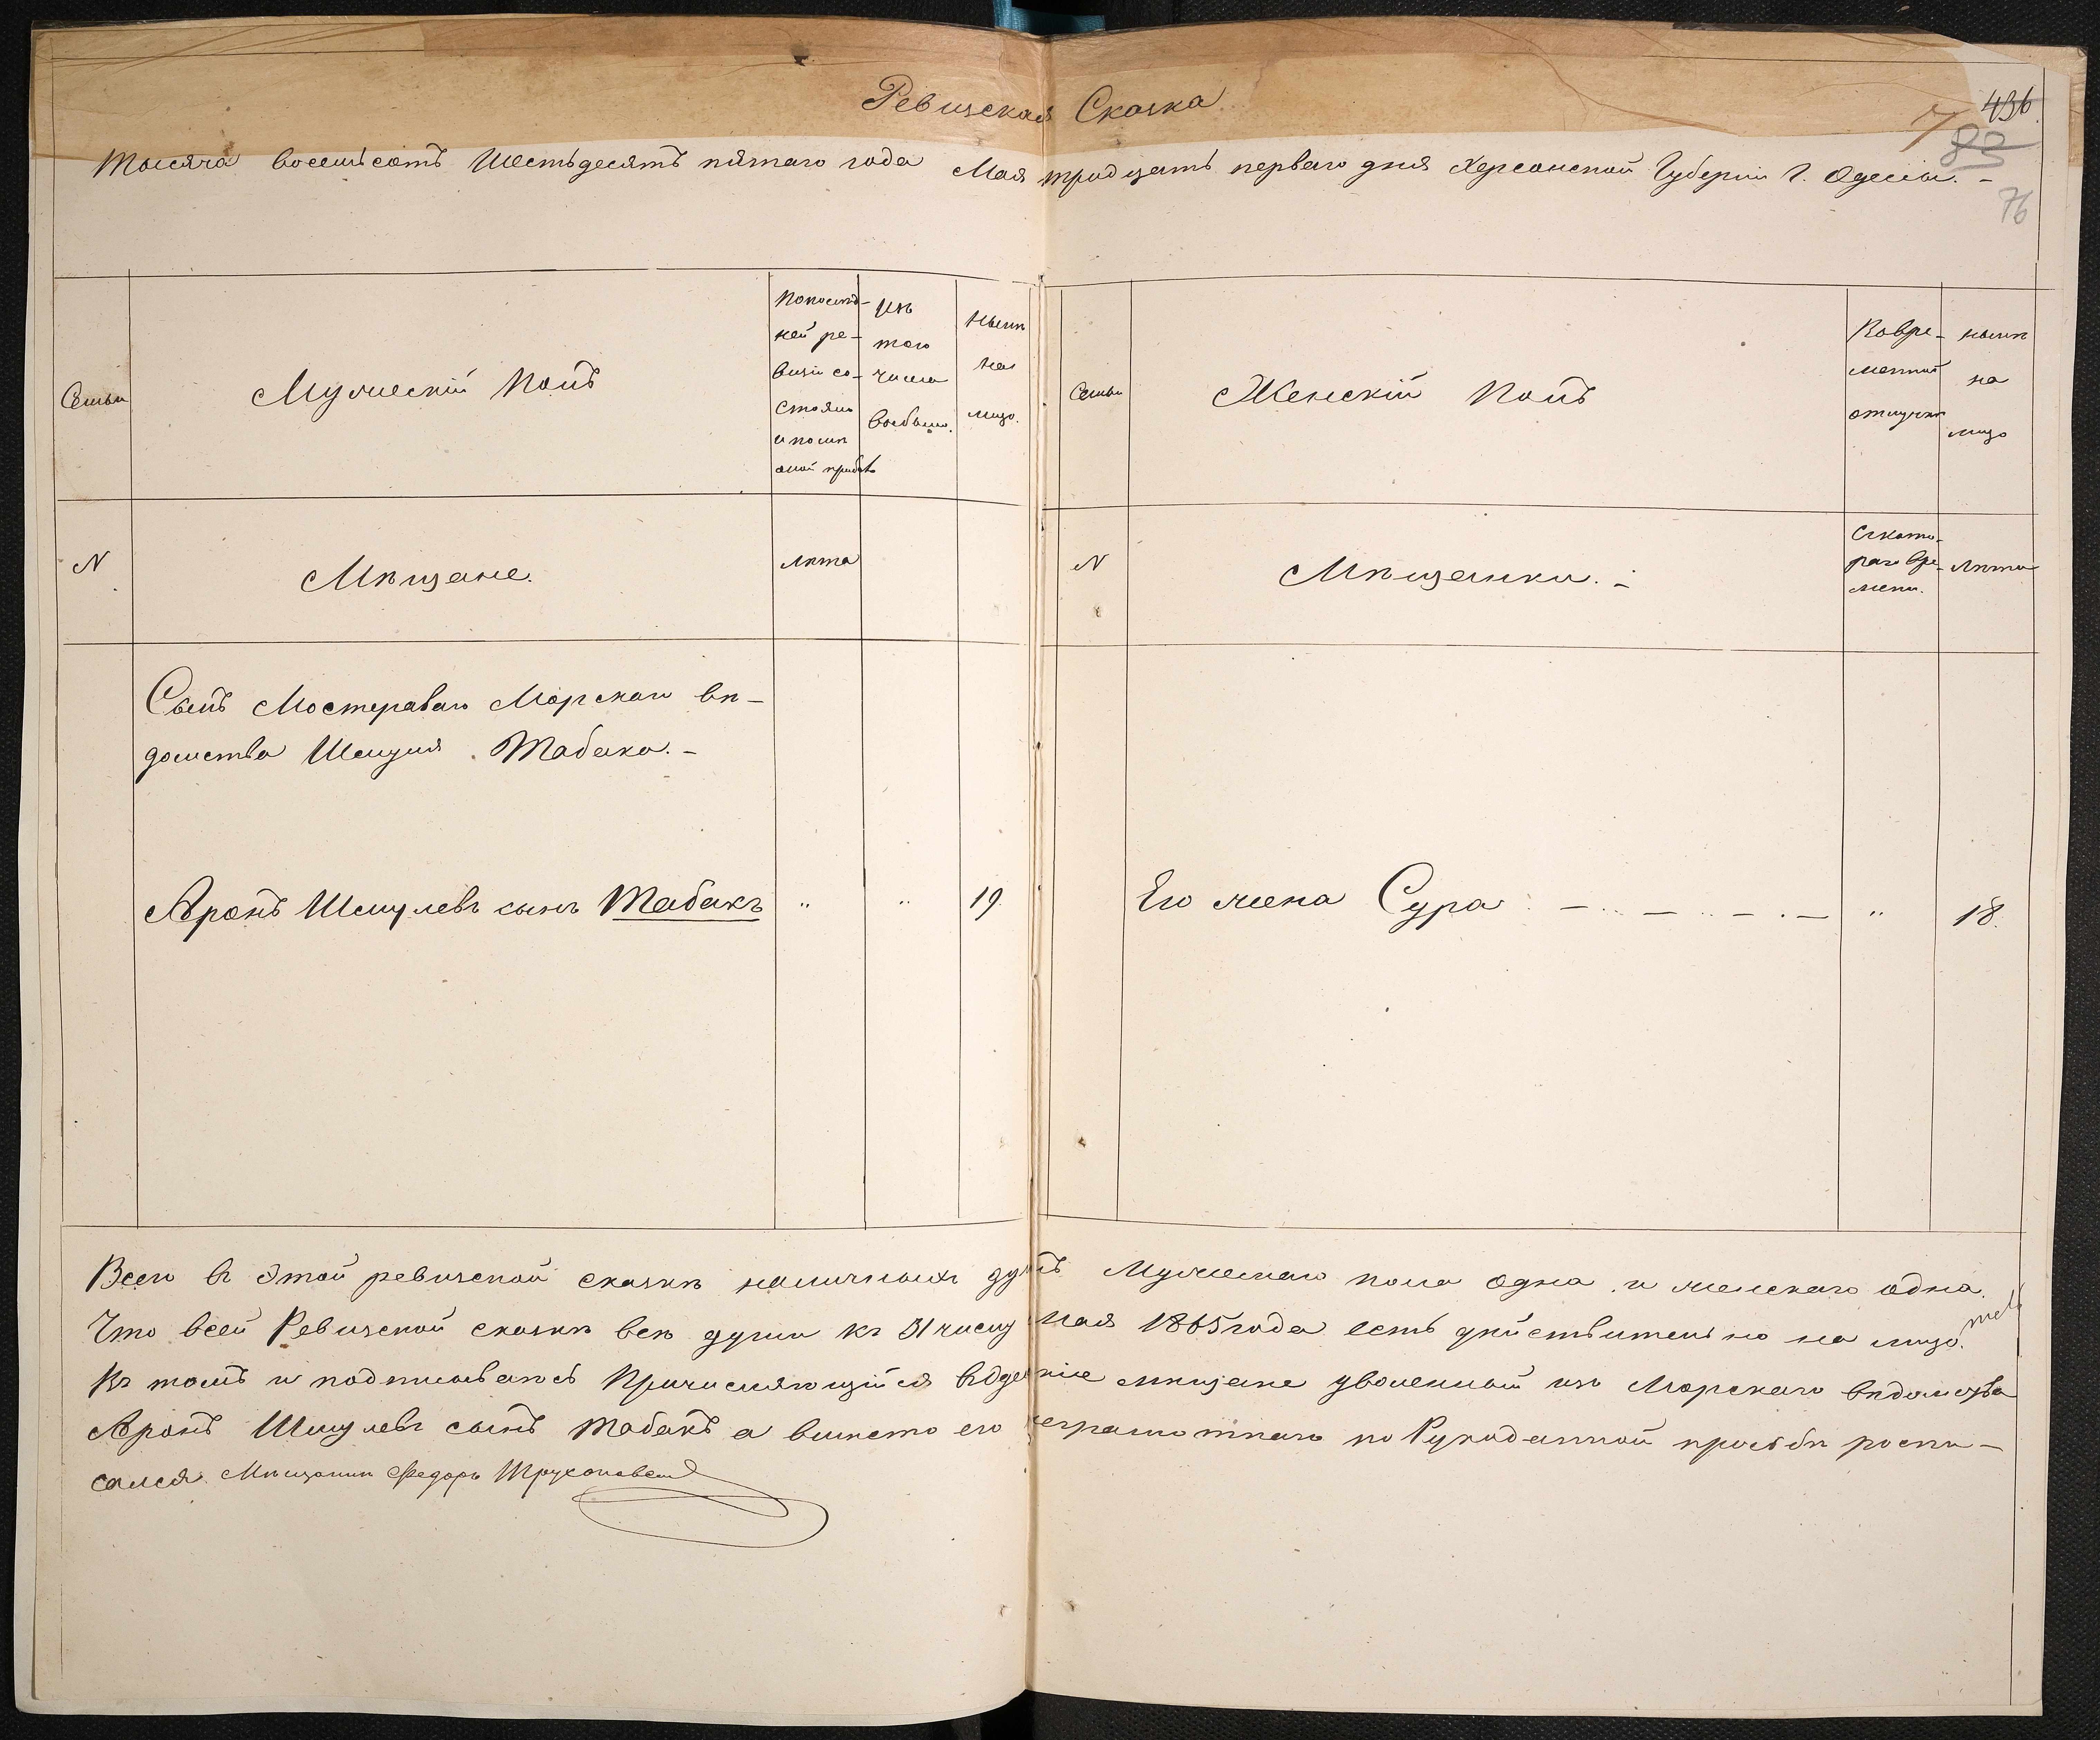 Ревизская Сказка
436
83
76
Тысяча восемьсотъ Шестьдесятъ пятаго года Мая тридцать перваго дня Херсонской Губерніи Г. Одессы. –
Семьи
Мужескій Полъ
Попослѣд-
ней ре-
визіи со-
стояло
и послѣ
оной прибыло
Изъ
того
числа
выбыло.
Нынѣ
на
лицо.
Семьи
Женскій Полъ
Вовре-
менной
отлучкѣ
Нынѣ
на
лицо
N
Мѣщане.
лѣта
N
Мѣщанки. –
Съкото-
раго вре-
мени.
Лѣта
Сынъ Мостероваго Морскаго вѣ-
домства Шмуля Табака. –
Аронъ Шмулевъ сынъ Табакъ " " 19.
Его жена Сура – – – – " 18.
Всего въ этой ревизской сказкѣ наличныхъ душъ Мужескаго пола одна и женскаго одна.
Что всей Ревизской сказкѣ всѣ души къ 31 числу Мая 1865 года есть дѣйствительно на лицо.
Въ томъ и подписываюсь Причисляющійся въ Одескіе мѣщане уволенный изъ Морскаго вѣдомства
Аронъ Шмулевъ сынъ Табакъ а вмѣсто его неграмотнаго по Рукоданной просьбѣ роспи-
сался. Мѣщанинъ Федоръ